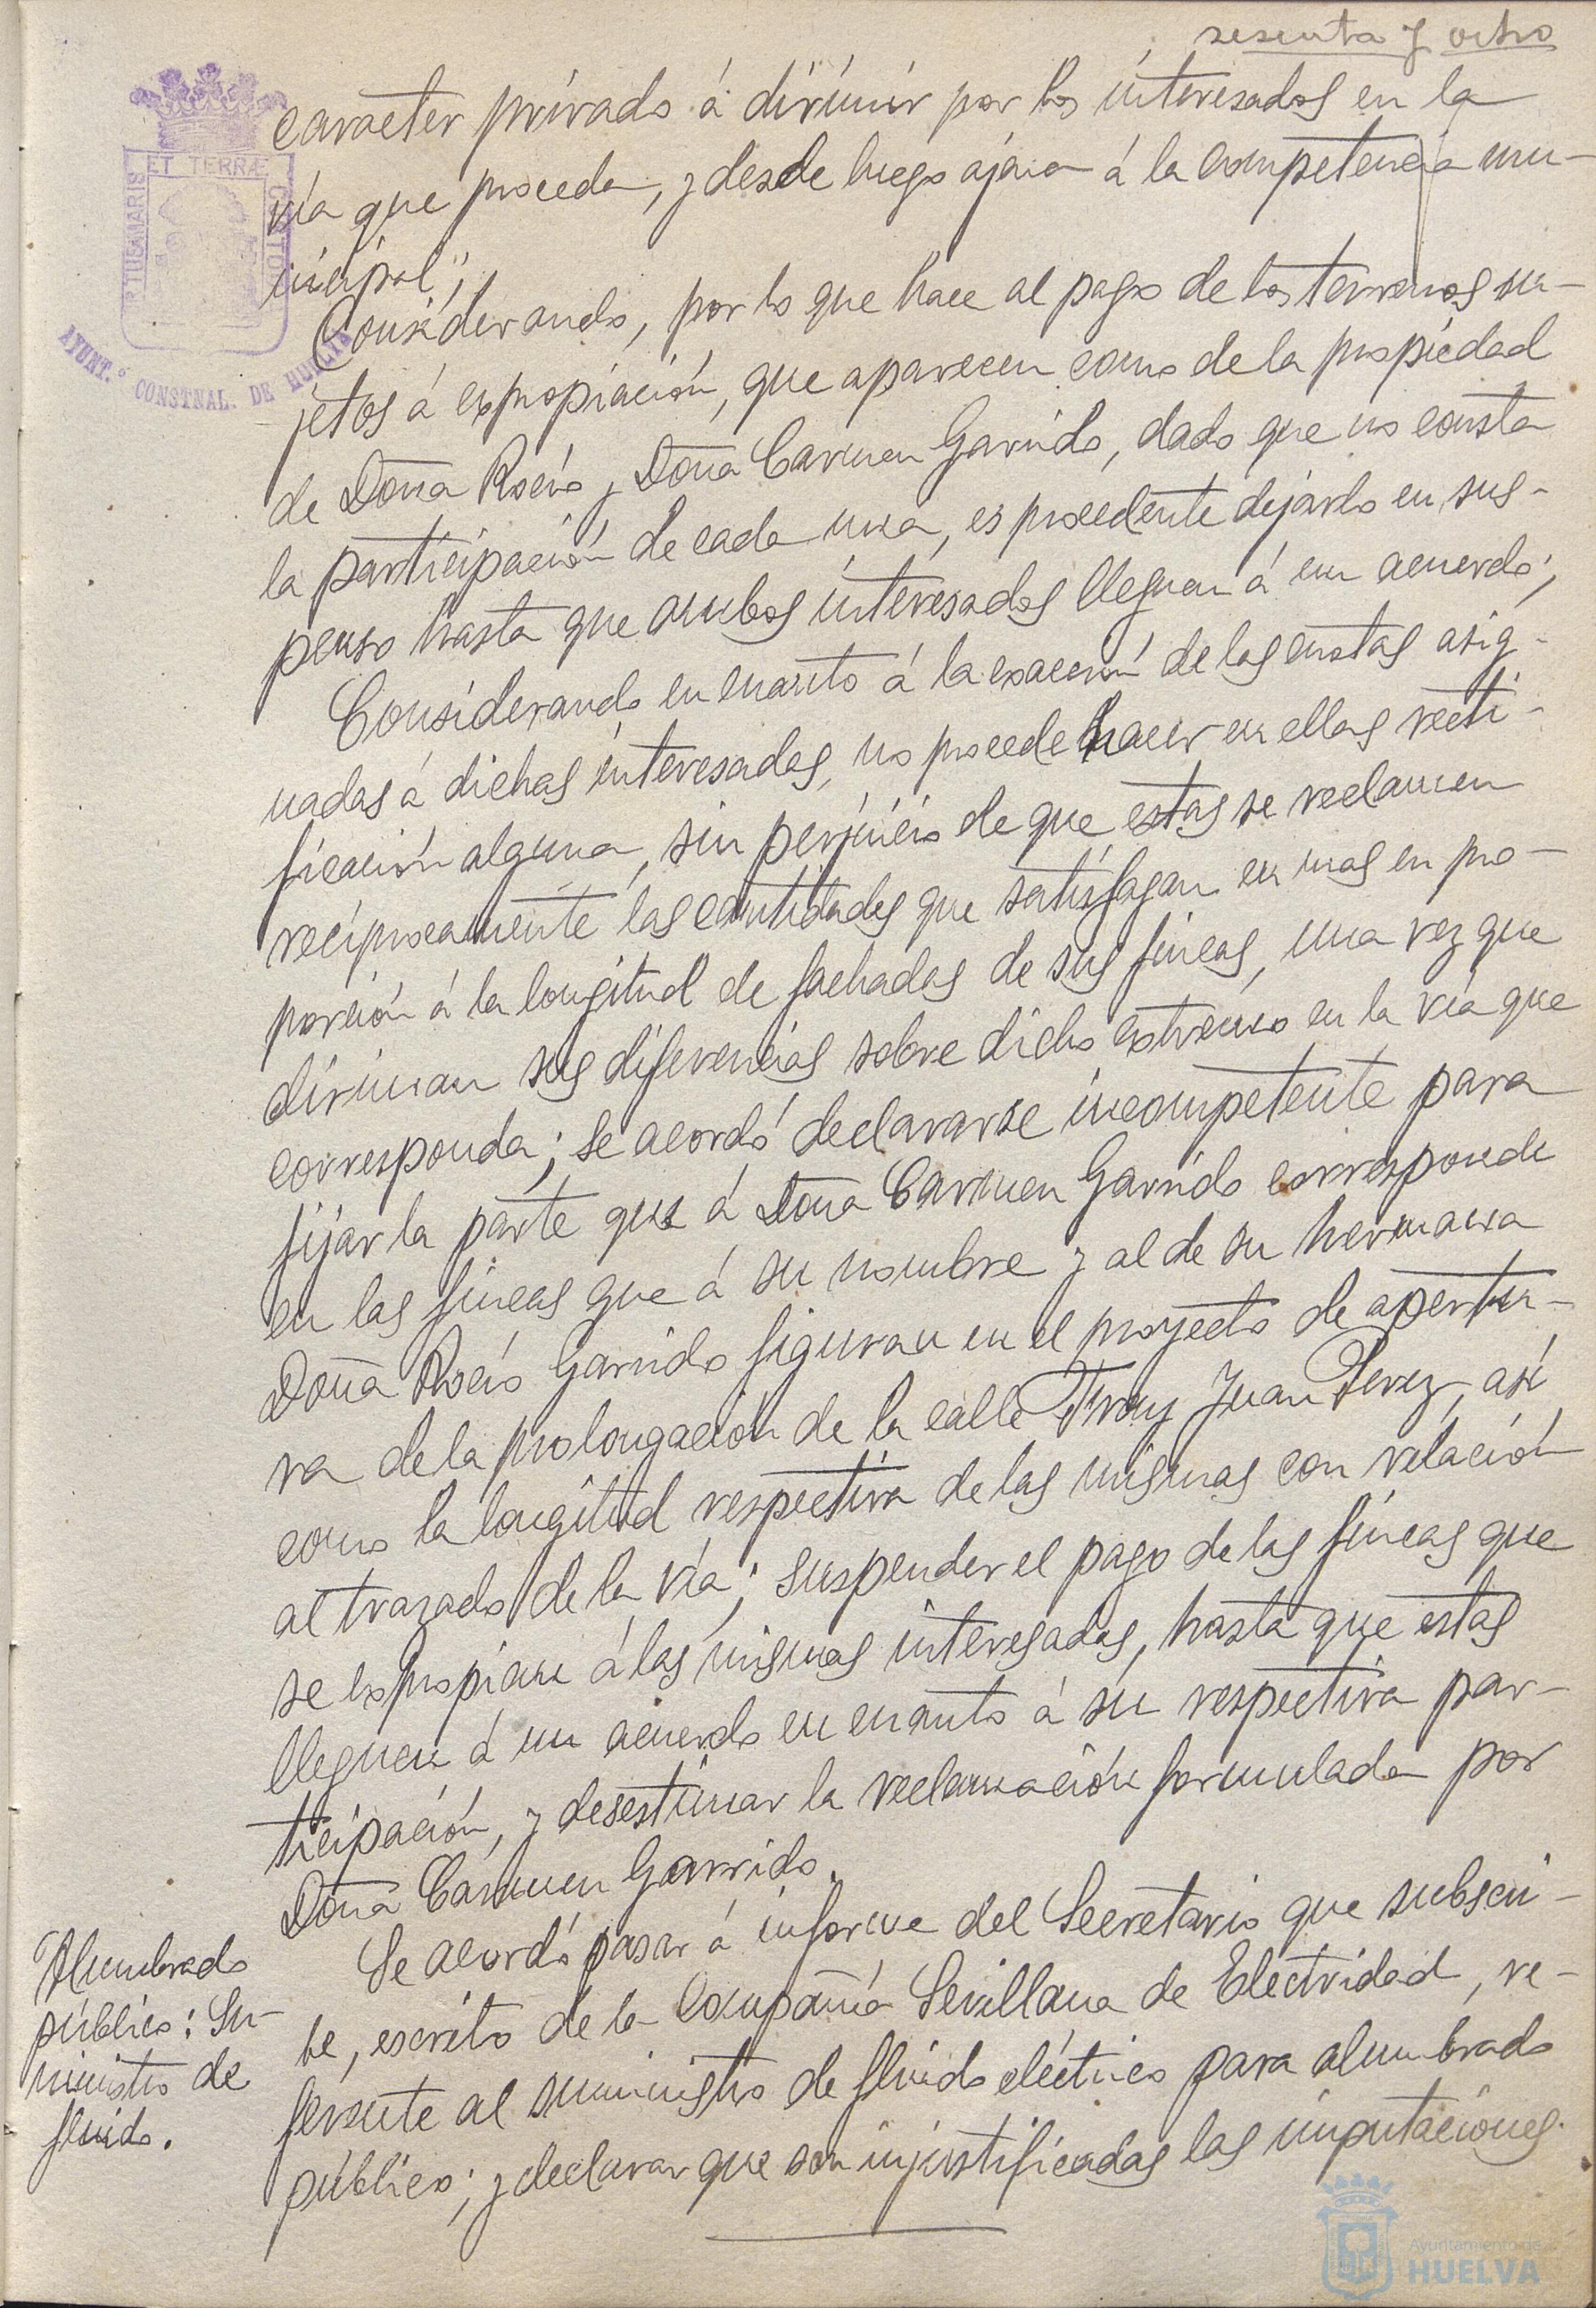 sesenta y ocho
caracter privado á dirimir por los interesados en la
vía que proceda, y desde luego ajena á la competencia mu-
nicipal";
Considerando, por lo que hace al pago de los terrenos su-
jetos á expropiación, que aparecen como de la propiedad
de Doña Rocío y Doña Carmen Garrido, dado que no consta
la participación de cada una, es procedente dejarlo en sus-
penso hasta que ambos interesados lleguen á un acuerdo;
Considerando en cuanto á la exacción de las cuotas asig-
nadas á dichas interesadas, no procede hacer en ellas recti-
ficación alguna, sin perjuicio de que estas se reclamen
reciprocamente las cantidades que satisfagan en mas en pro-
porción á la longitud de fachadas de sus fincas, una vez que
diriman sus diferencias sobre dicho extremo en la vía que
corresponda; se acordó declararse incompetente para
fijar la parte que á Doña Carmen Garrido corresponde
en las fincas que á su nombre y al de su hermana
Doña Rocío Garrido figuran en el proyecto de apertu-
ra de la prolongación de la calle Fray Juan Perez, así
como la longitud respectiva de las mismas con relación
al trazado de la vía; suspender el pago de las fincas que
se expropian á las mismas interesadas, hasta que estas
lleguen á un acuerdo en cuanto á su respectiva par-
ticipación, y desestimar la reclamación formulada por
Doña Carmen Garrido.
Alumbrado
público: Su-
ministro de
fluido.
Se acordó pasar á informe del Secretario que subscri-
be, escrito de la Compañía Sevillana de Electridad, re-
ferente al suministro de fluido eléctrico para alumbrado
público; y declarar que son injustificadas las imputaciones
ET TERRÆ
CUSTOD
PORTUS MARIS
AYUNT.º CONSTNAL. DE HUELVA
Ayuntamiento de
HUELVA